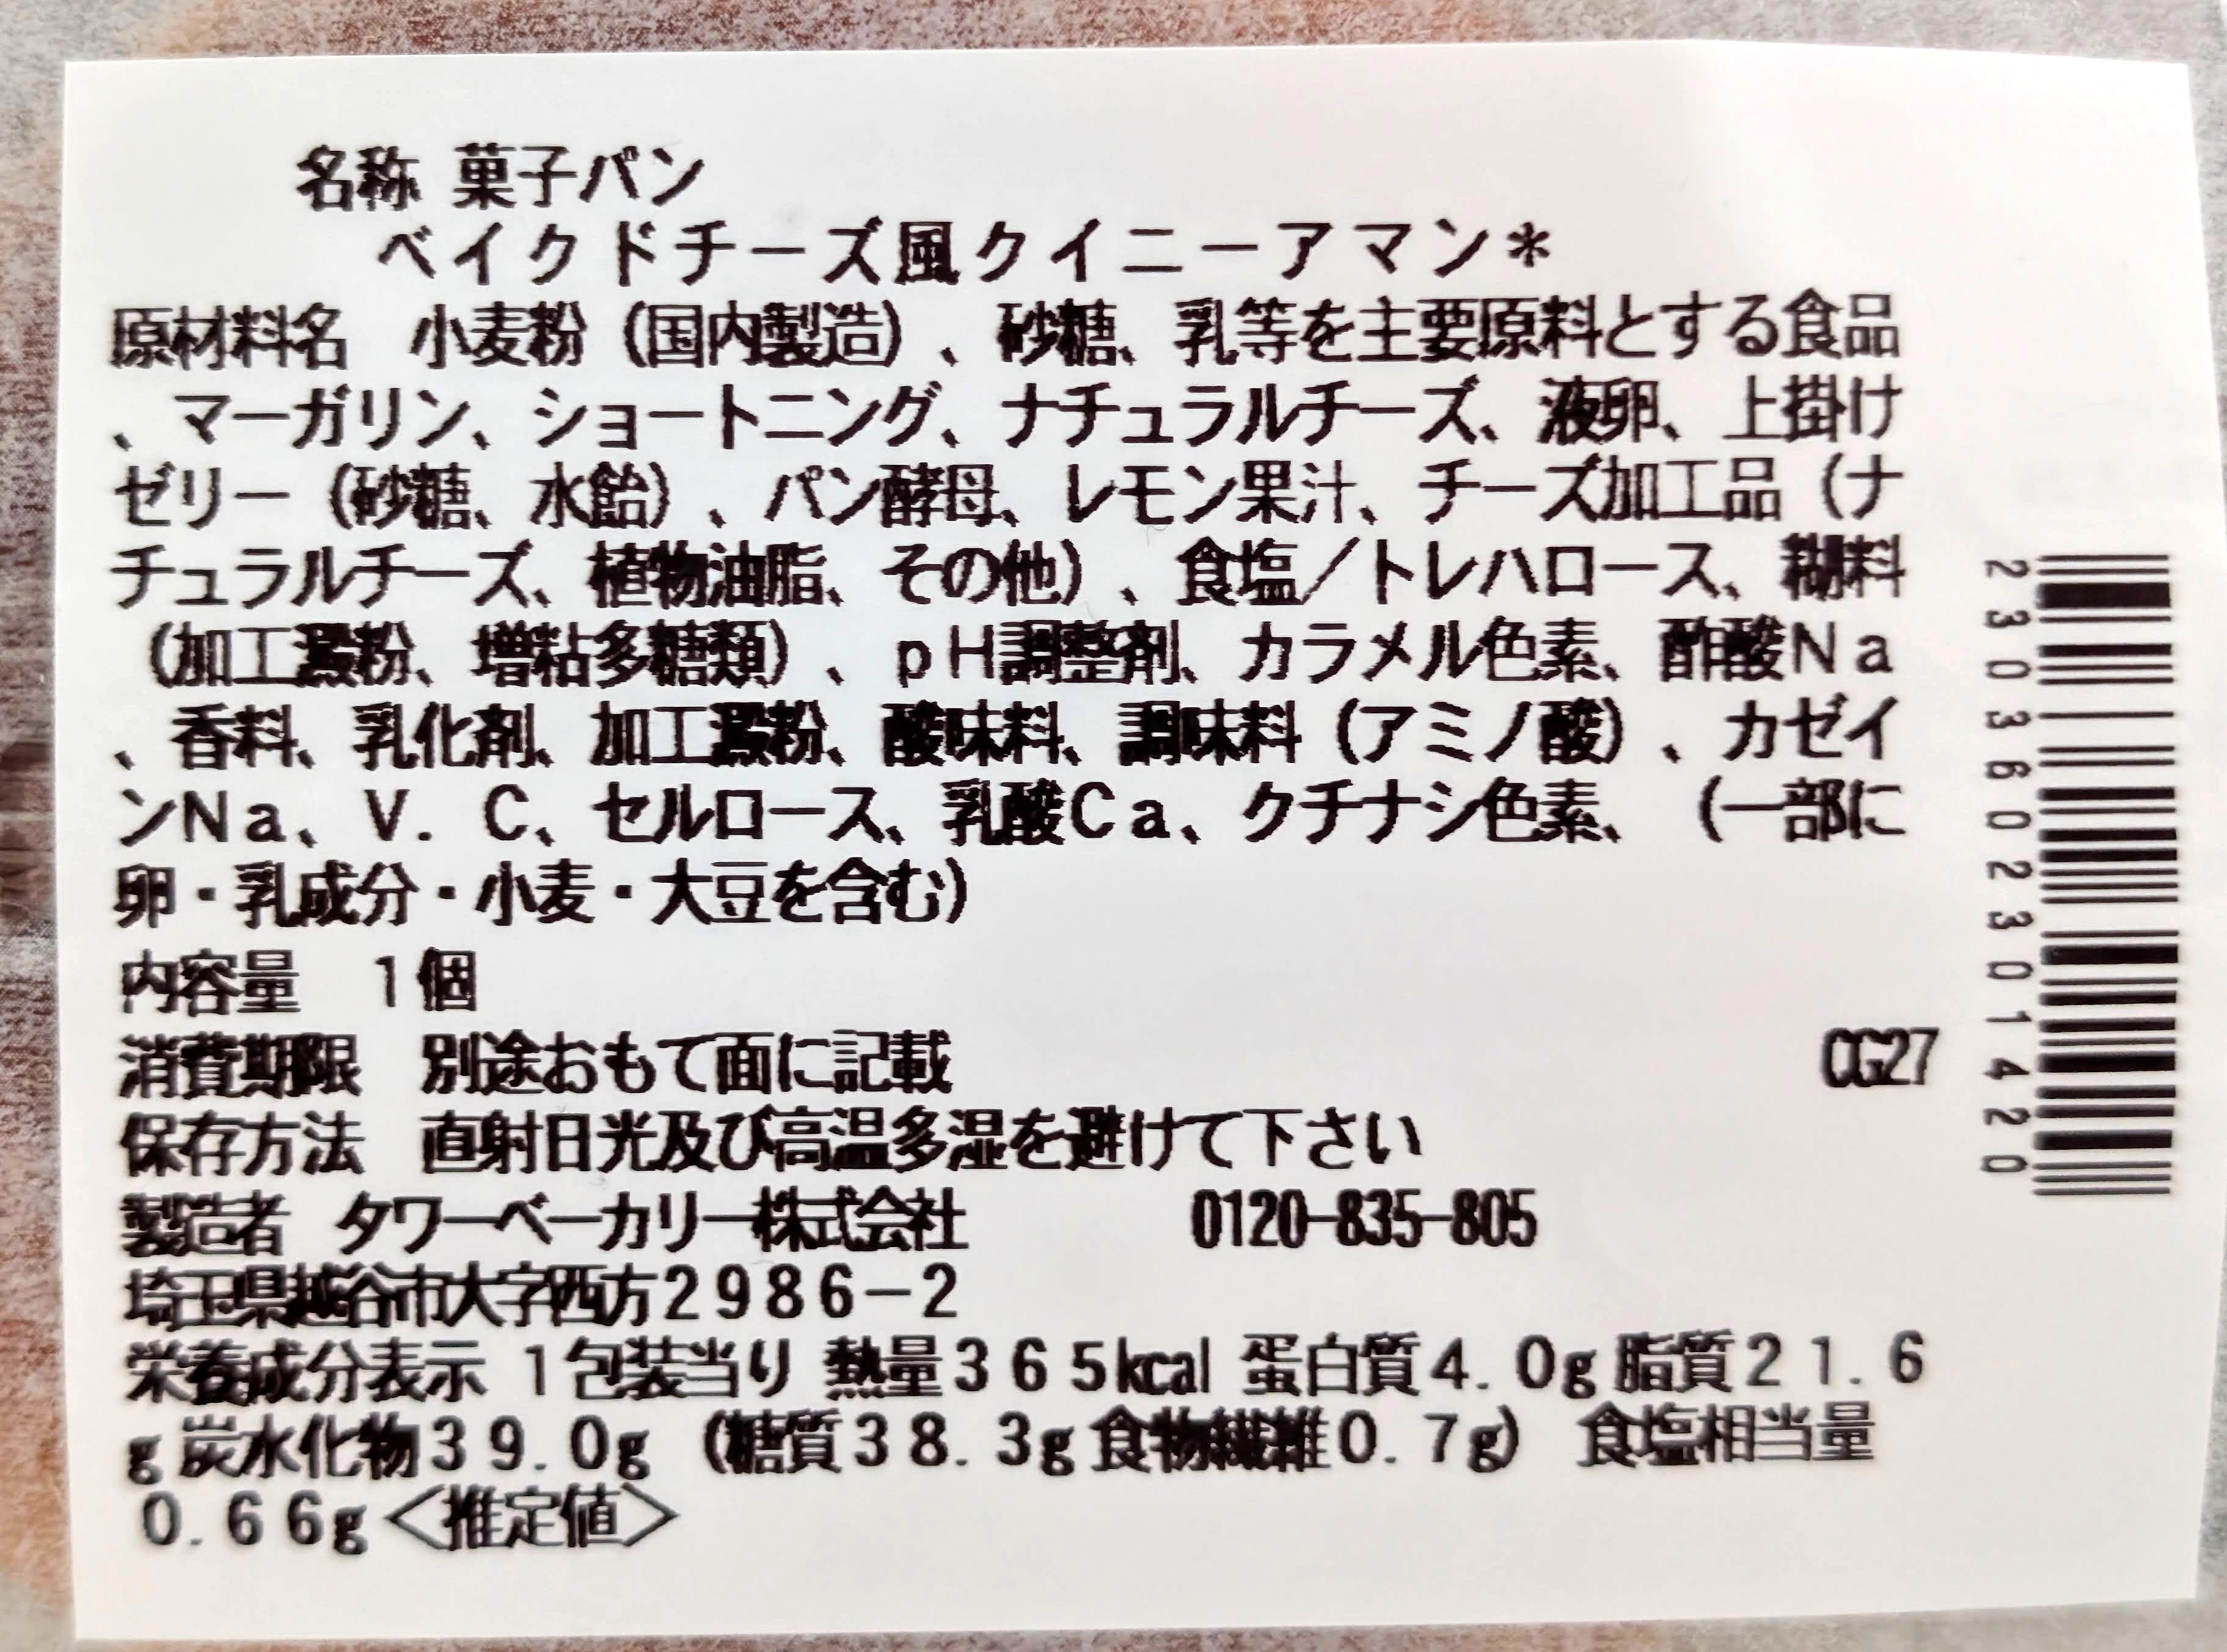 名称 菓子パン
ベイクドチーズ風クイニーアマン＊
原材料名　小麦粉（国内製造）、砂糖、乳等を主要原料とする食品
、マーガリン、ショートニング、ナチュラルチーズ、液卵、上掛け
ゼリー（砂糖、水飴）、パン酵母、レモン果汁、チーズ加工品（ナ
チュラルチーズ、植物油脂、その他）、食塩／トレハロース、糊料
（加工澱粉、増粘多糖類）、ｐＨ調整剤、カラメル色素、酢酸Ｎａ
、香料、乳化剤、加工澱粉、酸味料、調味料（アミノ酸）、カゼイ
ンＮａ、Ｖ．Ｃ、セルロース、乳酸Ｃａ、クチナシ色素、（一部に
卵・乳成分・小麦・大豆を含む）
内容量　１個
消費期限　別途おもて面に記載
CG27
保存方法　直射日光及び高温多湿を避けて下さい
製造者　タワーベーカリー株式会社　0120-835-805
埼玉県越谷市大字西方２９８６－２
栄養成分表示 １包装当り 熱量３６５kcal 蛋白質４．０g 脂質２１．６
g 炭水化物３９．０g （糖質３８．３g 食物繊維０．７g） 食塩相当量
０．６６g＜推定値＞
2303602301420